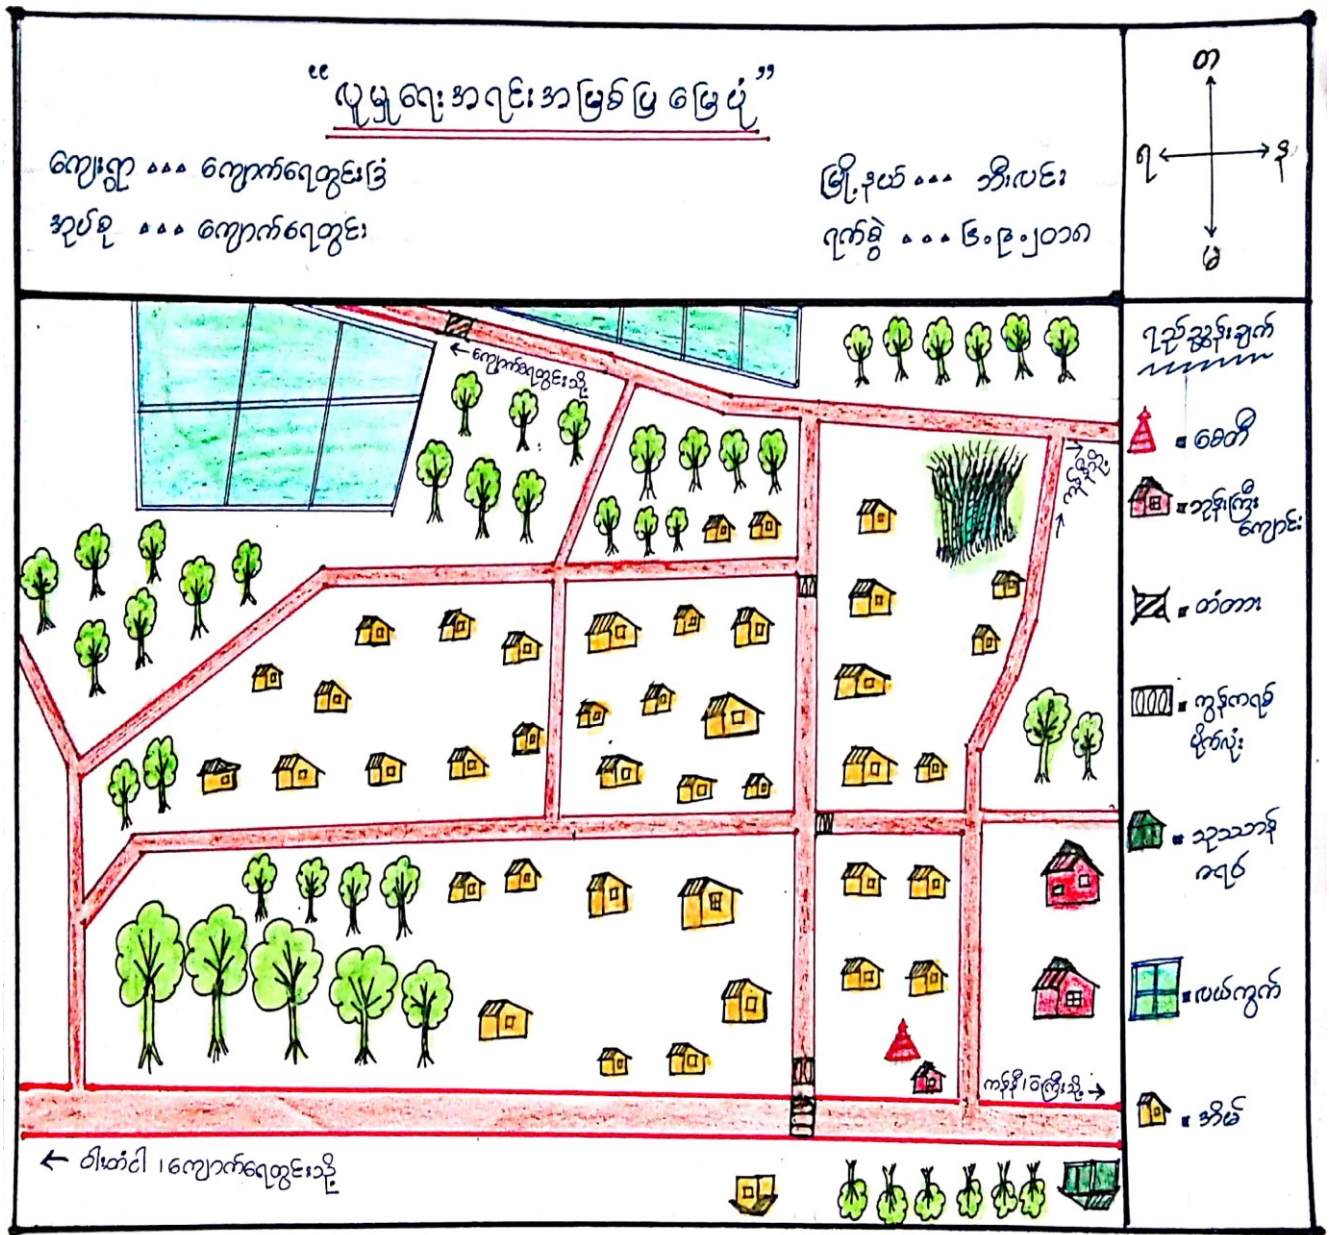 “လူမှုရေးအရင်းအမြစ်ပြ မြေပုံ”
ကျေးရွာ ... ကျောက်ရေတွင်းဒြံ
မြို့နယ် ... ဘီးလင်း
အုပ်စု ... ကျောက်ရေတွင်း
ရက်စွဲ ... ၆.၉.၂၀၁၈
တ
ရ
န
မ
ရည်ညွှန်းချက်
= စေတီ
= ဘုန်းကြီး
ကျောင်း
= တံတား
= ကွန်ကရစ်
ပိုက်လုံး
= သုသာန်
ဇရပ်
= လယ်ကွက်
= အိမ်
← ကျောက်ရေတွင်းသို့
→
→
ကန်နီ၊ဝဲကြီးသို့ →
← ဝါးတံငါ ၊ ကျောက်ရေတွင်းသို့